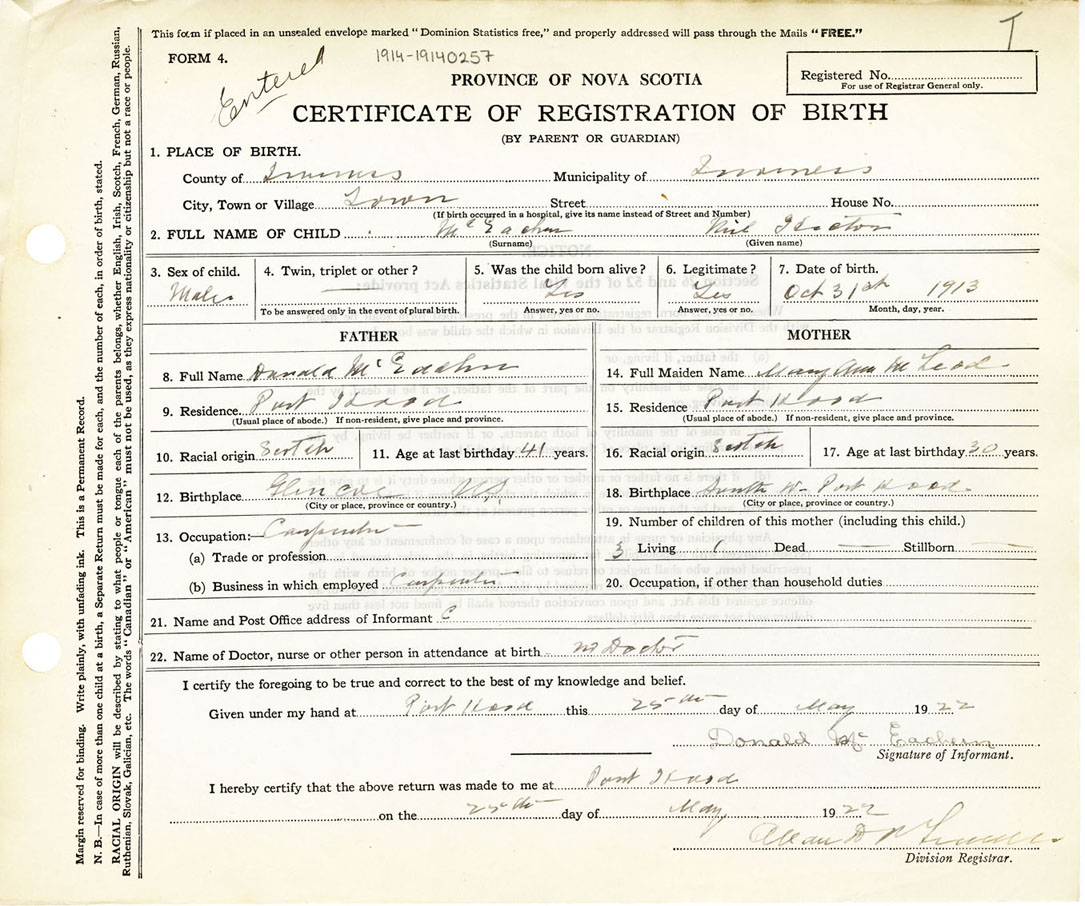 This form if placed in an unsealed envelope marked "Dominion Statistics free," and properly addressed will pass through the Mails "FREE."
T
FORM 4.
1914-19140257
Entered
PROVINCE OF NOVA SCOTIA
Registered No.
For use of Registrar General only.
CERTIFICATE OF REGISTRATION OF BIRTH
(BY PARENT OR GUARDIAN)
1. PLACE OF BIRTH.
County of Inverness Municipality of Inverness
City, Town or Village Town Street House No.
(If birth occurred in a hospital, give its name instead of Street and Number)
2. FULL NAME OF CHILD McEachen Neil Hector
(Surname) (Given name)
3. Sex of child. 4. Twin, triplet or other? 5. Was the child born alive? 6. Legitimate? 7. Date of birth.
Male Yes Yes Oct 31st 1913
To be answered only in the event of plural birth. Answer, yes or no. Answer, yes or no. Month, day, year.
FATHER MOTHER
8. Full Name Donald McEachen 14. Full Maiden Name Mary Ann McLeod
9. Residence Port Hood 15. Residence Port Hood
(Usual place of abode.) If non-resident, give place and province. (Usual place of abode.) If non-resident, give place and province.
10. Racial origin Scotch 11. Age at last birthday 41 years. 16. Racial origin Scotch 17. Age at last birthday 30 years.
12. Birthplace Glencoe NS 18. Birthplace South W. Port Hood
(City or place, province or country.) (City or place, province or country.)
13. Occupation:— Carpenter 19. Number of children of this mother (including this child.)
(a) Trade or profession 3 Living Dead Stillborn
(b) Business in which employed Carpenter 20. Occupation, if other than household duties
21. Name and Post Office address of Informant C
22. Name of Doctor, nurse or other person in attendance at birth no Doctor
I certify the foregoing to be true and correct to the best of my knowledge and belief.
Given under my hand at Port Hood this 25th day of May 1922
Donald McEachern
Signature of Informant.
I hereby certify that the above return was made to me at Port Hood
on the 25th day of May 1922
Allan D
Division Registrar.
Margin reserved for binding. Write plainly, with unfading ink. This is a Permanent Record.
N. B.—In case of more than one child at a birth, a Separate Return must be made for each, and the number of each, in order of birth, stated.
RACIAL ORIGIN will be described by stating to what people or tongue each of the parents belongs, whether English, Irish, Scotch, French, German, Russian,
Ruthenian, Slovak, Galician, etc. The words "Canadian" or "American" must not be used, as they express nationality or citizenship but not a race or people.